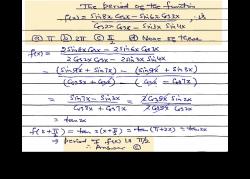 The period of the function
f(x) = Sin8x Cosx - Sin6x Cos3x is
Cos2x Cosx - Sin3x Sin4x
(a) π (b) 2π (c) π/2 (d) None of these
f(x) = 2Sin8x Cosx - 2Sin6x Cos3x
2Cos2x Cosx - 2Sin3x Sin4x
= (Sin9x + Sin7x) - (Sin9x + Sin3x)
(Cos3x + Cosx) - (Cosx - Cos7x)
= Sin7x - Sin3x = 2Cos5x Sin2x
Cos3x + Cos7x 2Cos5x Cos2x
= tan2x
f(x+π/2) = tan2(x+π/2) = tan(π+2x) = tan2x
⇒ period of f(x) is π/2
∴ Answer (c)